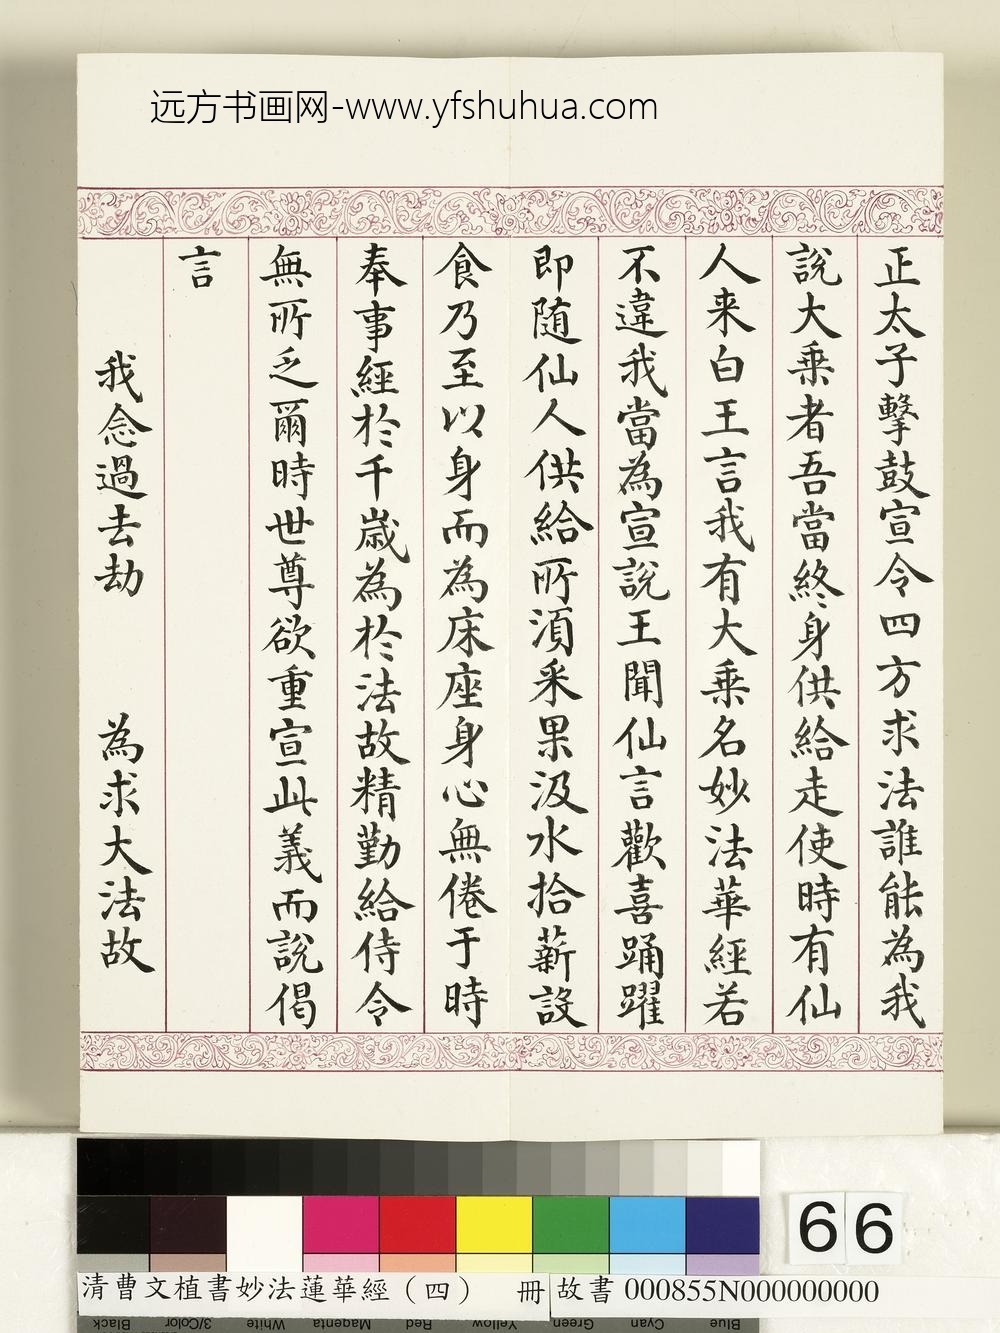 远方书画网-www.yfshuhua.com
正太子擊鼓宣令四方求法誰能為我
說大乗者吾當終身供給走使時有仙
人来白王言我有大乗名妙法華經若
不違我當為宣說王聞仙言歡喜踊躍
即随仙人供給所湏采果汲水拾薪設
食乃至以身而為床座身心無倦于時
奉事經於千歲為於法故精勤給侍令
無所乏爾時世尊欲重宣此義而說偈
言
我念過去劫 為求大法故
66
清曹文植書妙法蓮華經（四） 冊 故書 000855N000000000
Black 3/Color White Magenta Red Yellow Green Cyan Blue